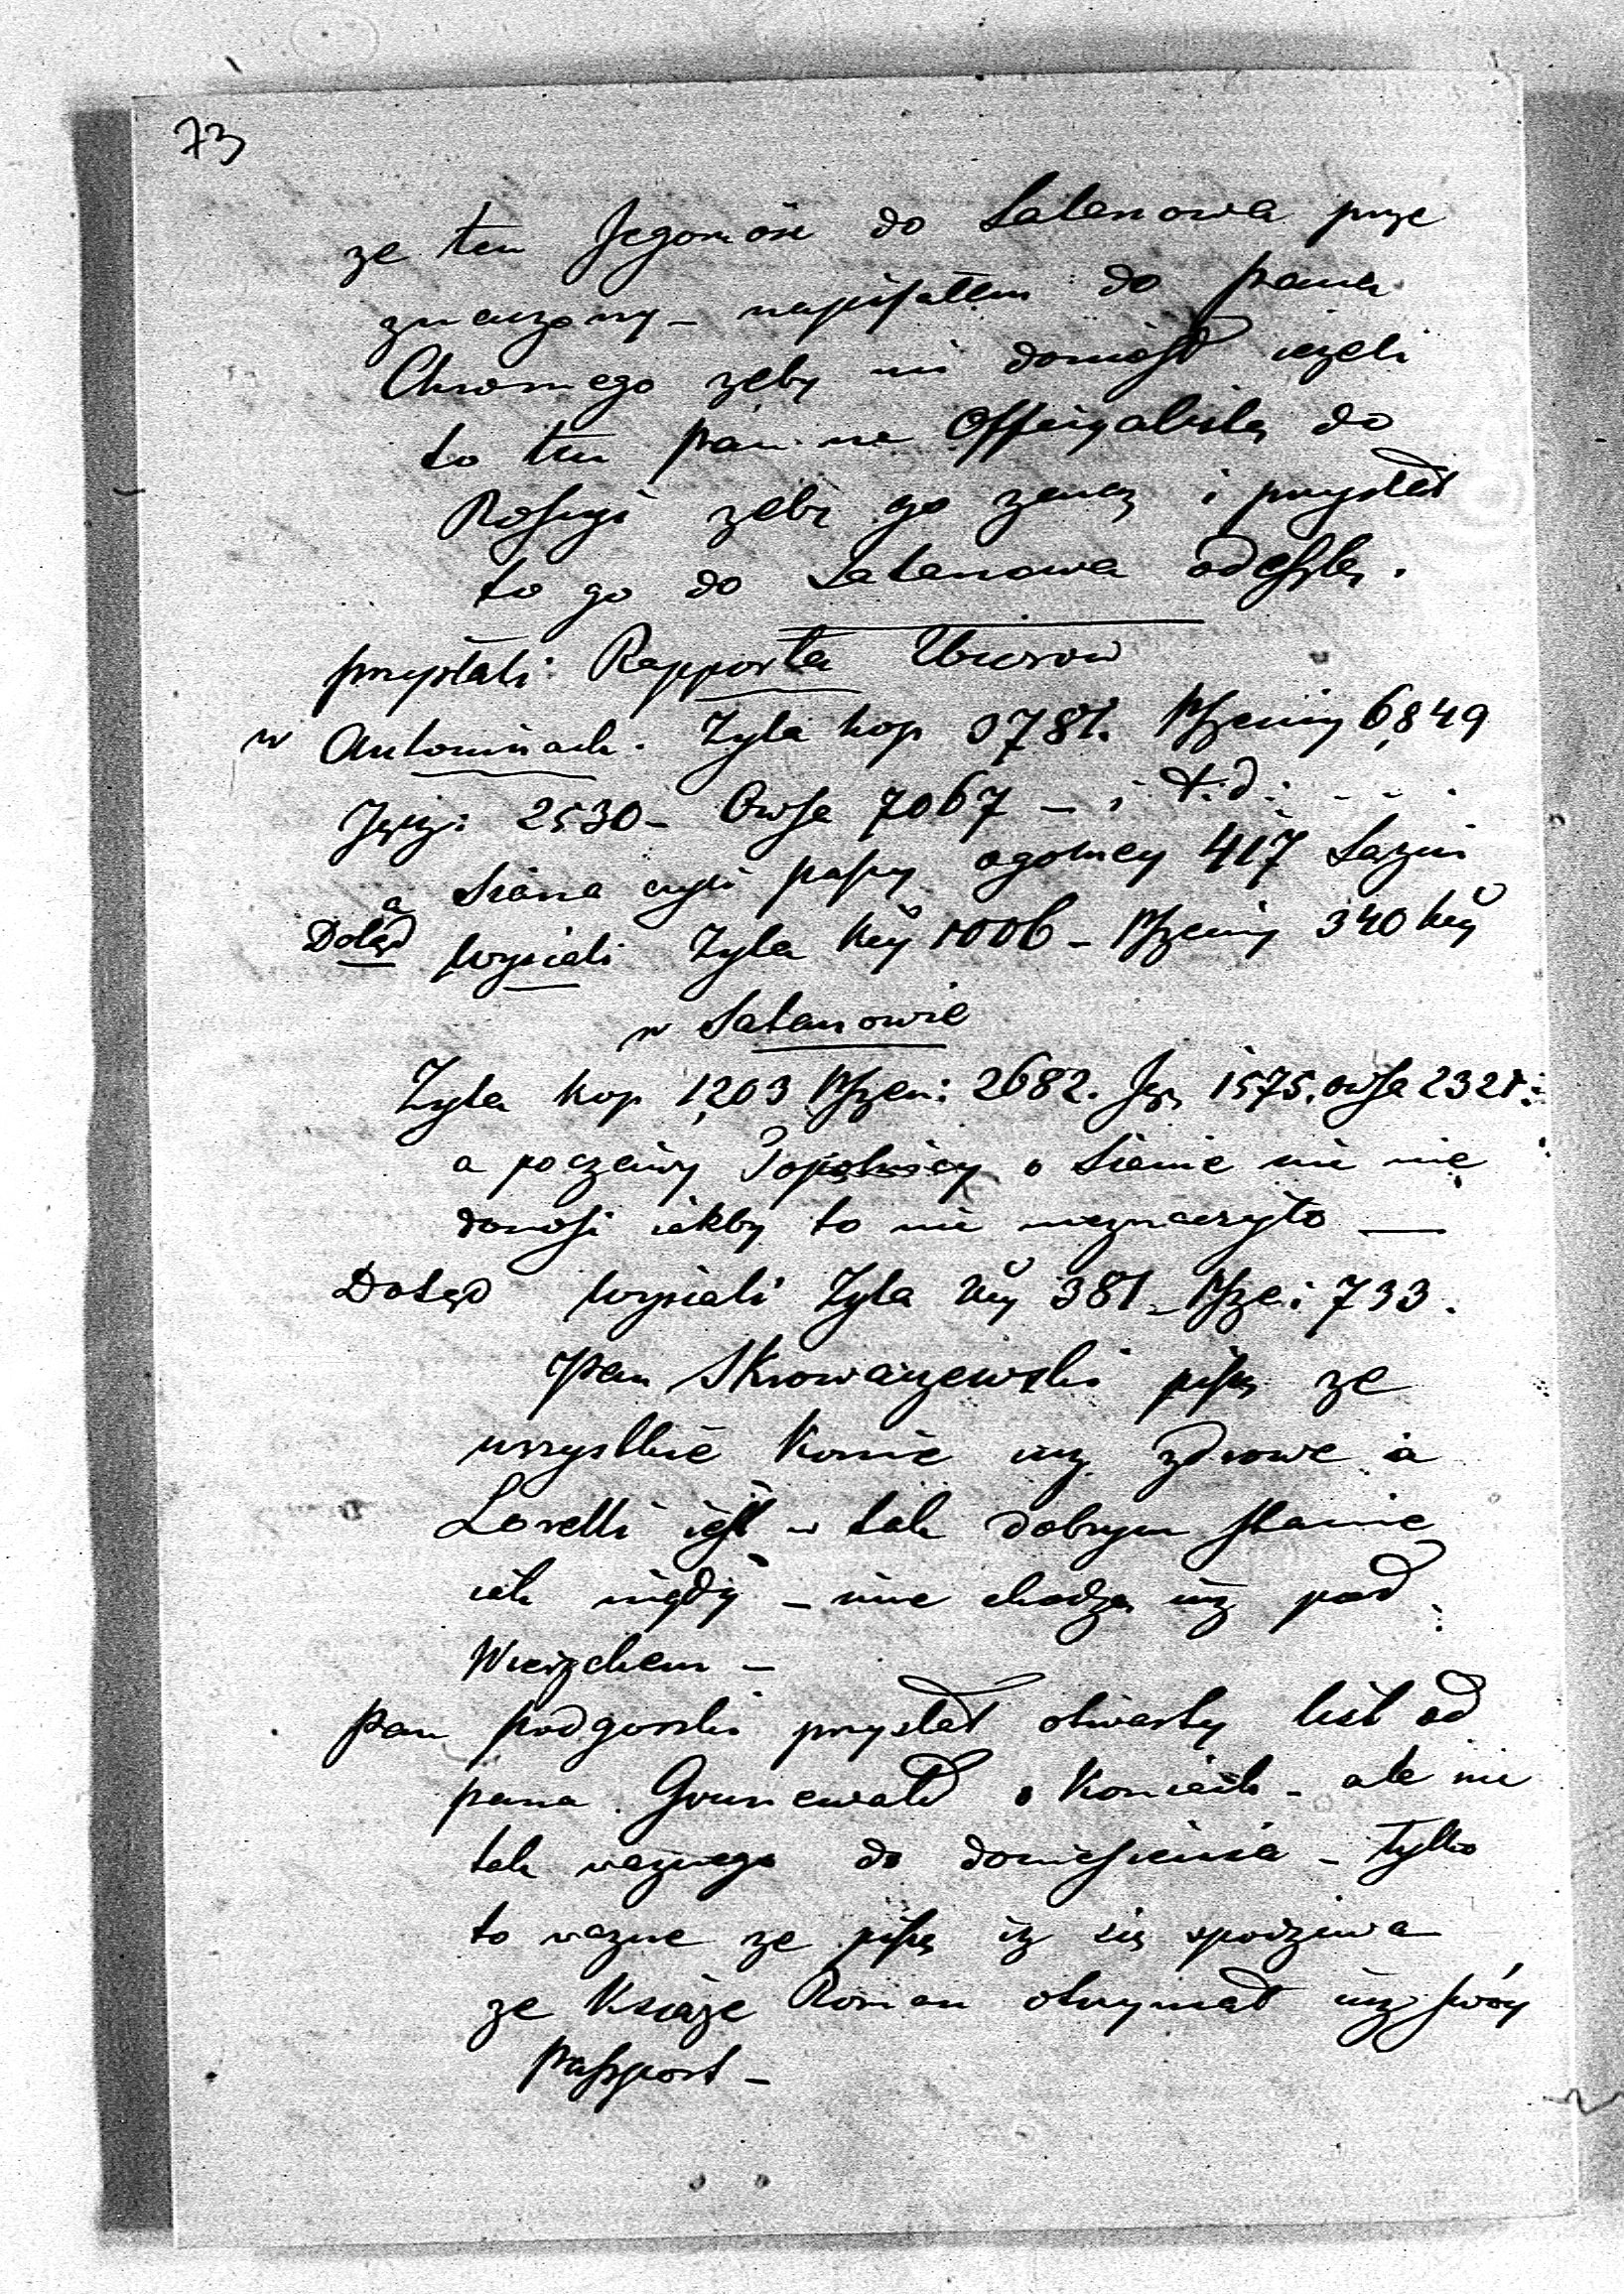 73
ze ten Jegomość do Satanowa prze
znaczony – napisałem do pana
Chromego zeby mi doniosł iezeli
to ten pan na Officyalistę do
Rossyi zeby go zaraz i przysłał
to go do Satanowa odeszlę.
przysłali Rapporta Zbiorow
w Antoninach. Zyta kop 3781. Pszenicy 6,849
Jęcz: 2530 – Owsa 7067 – i t. d: - - -
a Siana czyli paszy ogolney 417 Sazni
Dotąd wysieli Zyta 1006 – Pszenicy 340
w Satanowie
Zyta kop 1,203 Pszen: 2682. Jęz 1575. owsa 2321:
a poczciwy o Sianie nic nie
donosi iakby to nic nieznaczyło —
Dotąd wysiali Zyta 381 – Psze: 733.
Pan Skrowaczewski piszę ze
wszystkie Konie iuz zdrowe a
Loretti iest w tak dobrym stanie
iak nigdy – inne chodzą iuz pod
Wierzchem –
pan podgorski przysłał otwarty list od
pana Grunewald o Koniach – ale nic
tak waznego do doniesienia – tylko
to wazne ze piszę iz się spodziewa
ze Ksiąze Roman otrzymał iuz swóy
passport –